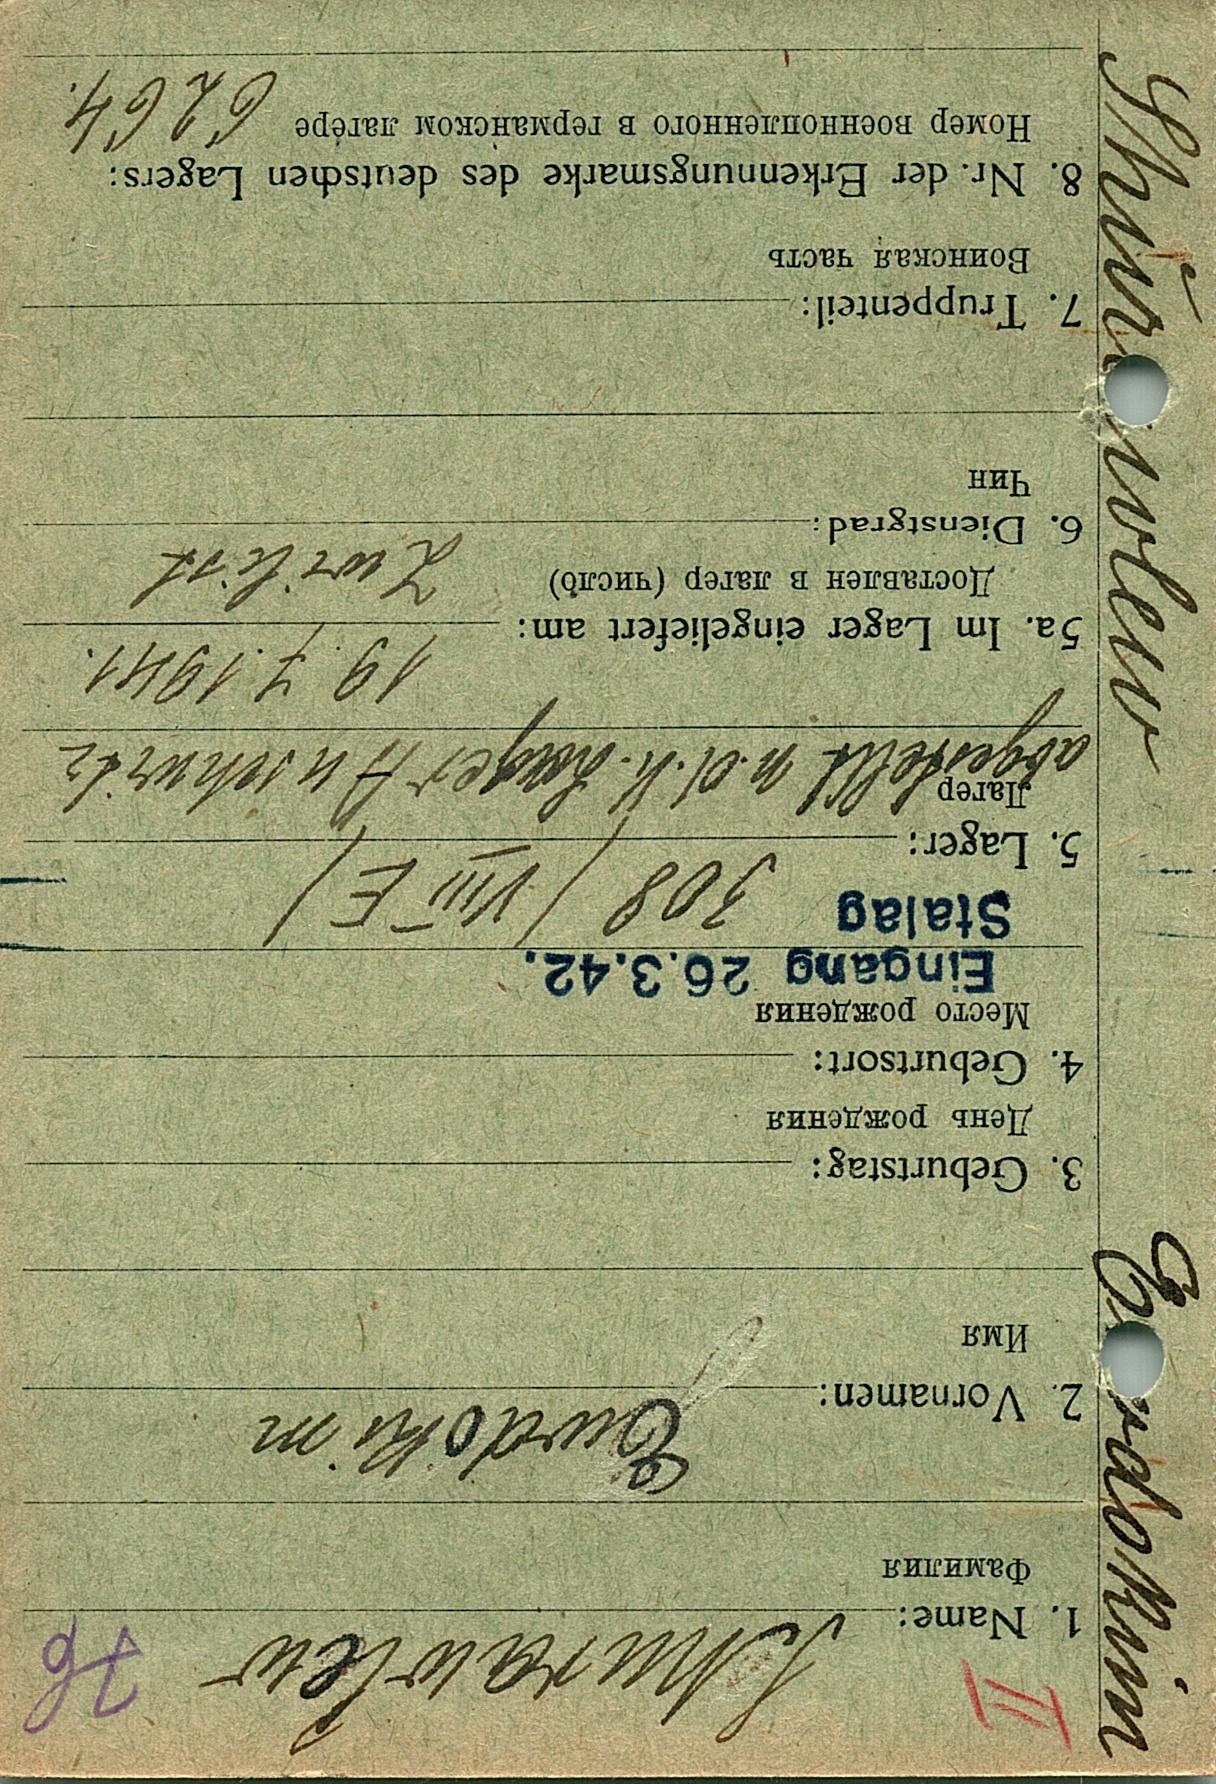 II
76
1. Name: Schurawlew
Фамилия
2. Vornamen: Ewdokim
Имя
3. Geburtstag:
День рождения
4. Geburtsort:
Место рождения
Eingang 26.3.42.
Stalag 308 (VIII E)
5. Lager:
Лагер
abgestellt n.d.K. Lager Auschwitz
19.7.1941.
5a. Im Lager eingeliefert am:
Доставлен в лагер (число)
Zivilist
6. Dienstgrad:
Чин
7. Truppenteil:
Воинская часть
8. Nr. der Erkennungsmarke des deutschen Lagers:
Номер военнопленного в германском лагере 6264.
Ewdokim